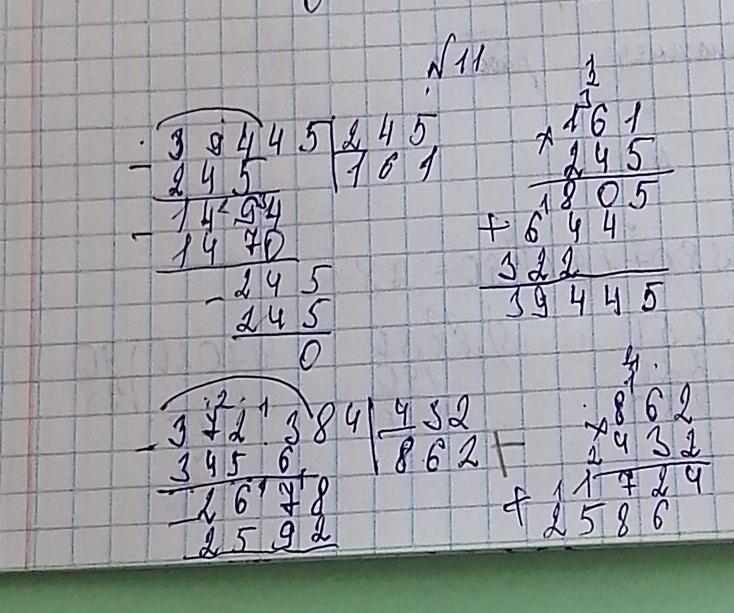 №11
- 39445 | 245
245 | 161
1494
- 1470
- 245
245
0
161
× 245
805
+ 644
322
39445
- 372384 | 432
3456 | 862
- 2678
2592
862
× 432
1724
+ 2586